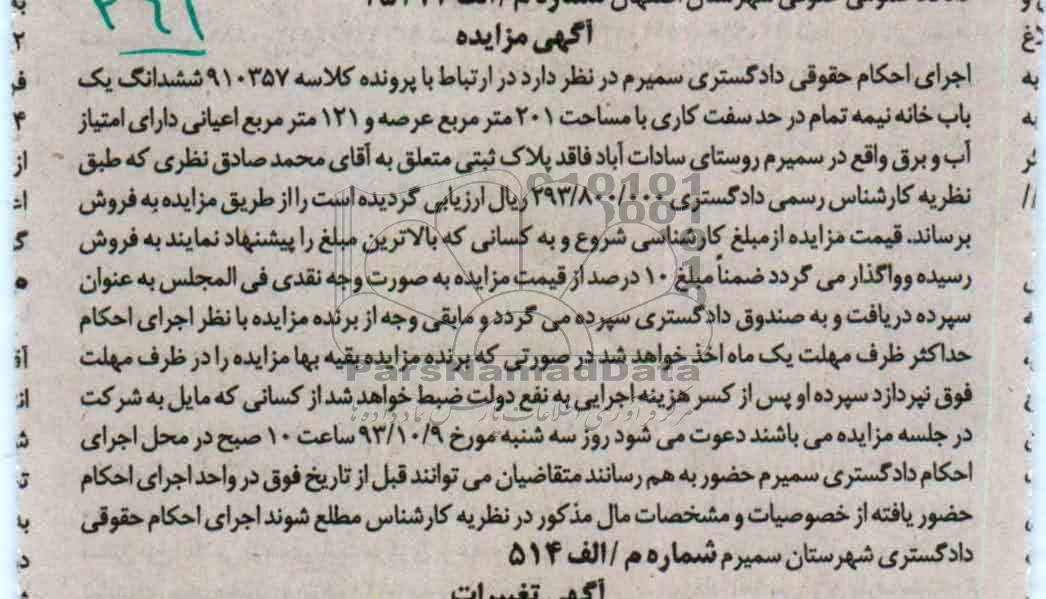 ۲۶۱
آگهی مزایده
اجرای احکام حقوقی دادگستری سمیرم در نظر دارد در ارتباط با پرونده کلاسه ۹۱۰۳۵۷ ششدانگ یک
باب خانه نیمه تمام در حد سفت کاری با مساحت ۲۰۱ متر مربع عرصه و ۱۲۱ متر مربع اعیانی دارای امتیاز
آب و برق واقع در سمیرم روستای سادات آباد فاقد پلاک ثبتی متعلق به آقای محمد صادق نظری که طبق
نظریه کارشناس رسمی دادگستری ۲۹۳/۸۰۰/۰۰۰ ریال ارزیابی گردیده است را از طریق مزایده به فروش
برساند. قیمت مزایده از مبلغ کارشناسی شروع و به کسانی که بالاترین مبلغ را پیشنهاد نمایند به فروش
رسیده وواگذار می گردد ضمناً مبلغ ۱۰ درصد از قیمت مزایده به صورت وجه نقدی فی المجلس به عنوان
سپرده دریافت و به صندوق دادگستری سپرده می گردد و مابقی وجه از برنده مزایده با نظر اجرای احکام
حداکثر ظرف مهلت یک ماه اخذ خواهد شد در صورتی که برنده مزایده بقیه بها مزایده را در ظرف مهلت
فوق نپردازد سپرده او پس از کسر هزینه اجرایی به نفع دولت ضبط خواهد شد از کسانی که مایل به شرکت
در جلسه مزایده می باشند دعوت می شود روز سه شنبه مورخ ۹۳/۱۰/۹ ساعت ۱۰ صبح در محل اجرای
احکام دادگستری سمیرم حضور به هم رسانند متقاضیان می توانند قبل از تاریخ فوق در واحد اجرای احکام
حضور یافته از خصوصیات و مشخصات مال مذکور در نظریه کارشناس مطلع شوند اجرای احکام حقوقی
دادگستری شهرستان سمیرم شماره م /الف ۵۱۴
آگهی تغییرات
ParsNamadData